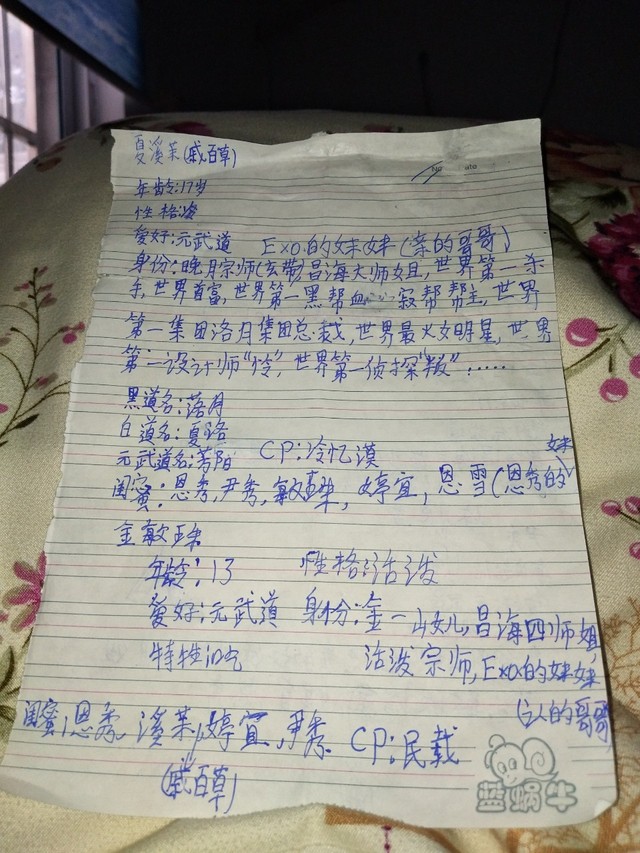 夏溪茉(戚百草)
年龄:17岁
性格:冷
爱好:元武道 Exo.的妹妹(亲的哥哥)
身份:晚月宗师(玄带)昌海大师姐,世界第一杀
手,世界首富,世界第一黑帮血 寂帮帮主,世界
第一集团洛月集团总裁,世界最火女明星,世界
第一设计师“怜”,世界第一侦探“叛”.....
黑道名:落月
白道名:夏洛
元武道名:芳阳 CP:冷忆漠
闺蜜:恩秀,尹秀,敏珠,婷宜,恩雪(恩秀的妹
金敏珠
年龄:13 性格:活泼
爱好:元武道 身份:金一山女儿,昌海四师姐,
特性:吃 活泼宗师,Exo.的妹妹
闺蜜:恩秀,溪茉,婷宜,尹秀. CP:民载
(戚百草)
蓝蜗牛